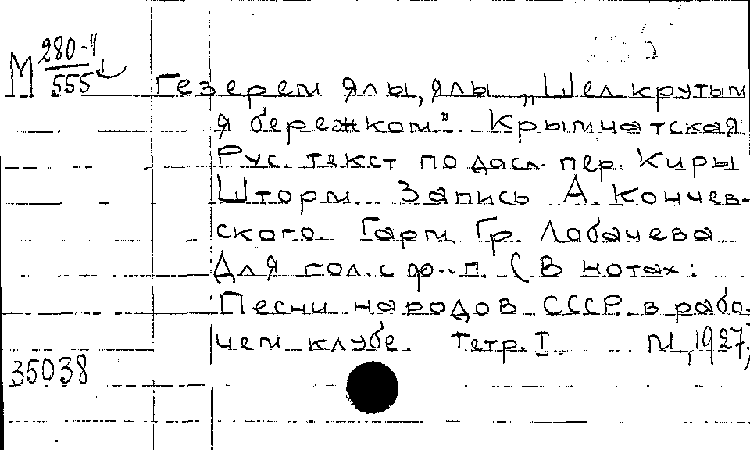 М 280-1
555
Гезерем ялы, ялы „Шел крутым
я бережком". Крымчатская
Рус. текст по досл. пер. Киры
Шторм. Запись А. Кончев-
ского. Гарм. Гр. Лобачева
Для гол. с ф.-п. (В нотах:
Песни народов СССР в рабо-
чем клубе. Тетр. I. М., 1927,
35038